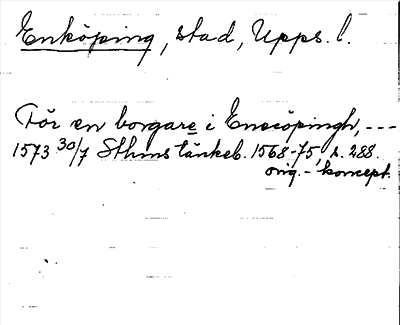 Enköping, stad, Upps. l.
För en borgare i Enecöpingh, ---
1573 30/7 Sthms tänkeb. 1568-75, s. 288.
orig.- koncept.